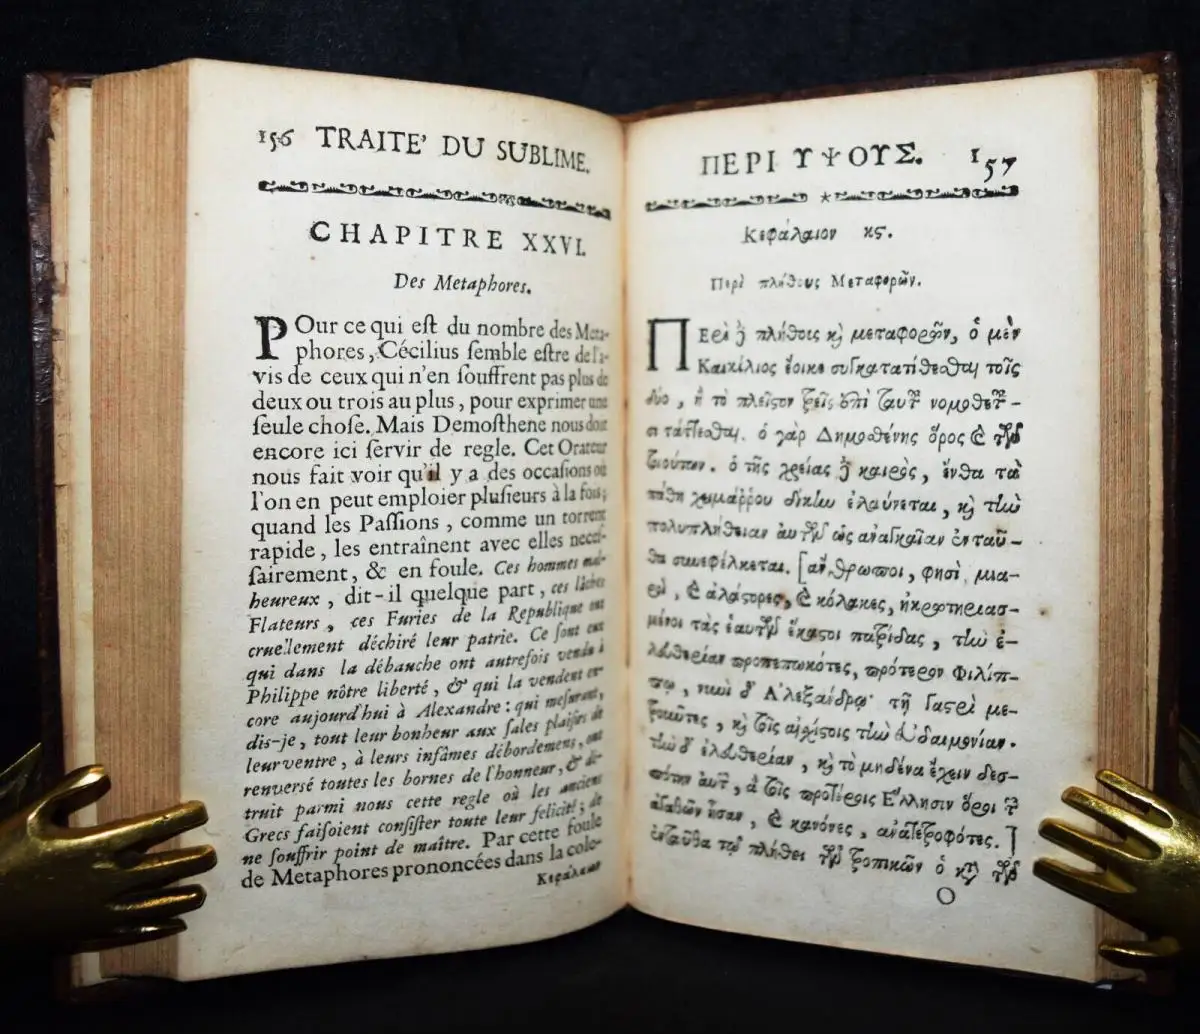 156 TRAITE' DU SUBLIME.
CHAPITRE XXVI.
Des Metaphores.
POur ce qui eſt du nombre des Meta-
phores, Cécilius ſemble eſtre de l'a-
vis de ceux qui n'en ſouffrent pas plus de
deux ou trois au plus, pour exprimer une
ſeule choſe. Mais Demoſthene nous doit
encore ici ſervir de regle. Cet Orateur
nous fait voir qu'il y a des occaſions où
l'on en peut emploier pluſieurs à la fois;
quand les Paſſions, comme un torrent
rapide, les entraînent avec elles neceſ-
ſairement, & en foule. Ces hommes mal-
heureux, dit-il quelque part, ces lâches
Flateurs, ces Furies de la Republique ont
cruellement déchiré leur patrie. Ce ſont eux
qui dans la débauche ont autrefois vendu à
Philippe nôtre liberté, & qui la vendent en-
core aujourd'hui à Alexandre: qui meſurant,
dis-je, tout leur bonheur aux ſales plaiſirs de
leur ventre, à leurs infâmes débordemens, ont
renverſé toutes les bornes de l'honneur, & dé-
truit parmi nous cette regle où les anciens
Grecs faiſoient conſiſter toute leur felicité; de
ne ſouffrir point de maître. Par cette foule
de Metaphores prononcées dans la cole-
Κεφάλαιον
ΠΕΡΙ ΥΨΟΥΣ. 157
Κεφάλαιον κϛ.
Περὶ πλήθους Μεταφορῶν.
ΠΕρὶ ἢ πλήθοις κὴ μεταφορῶν, ὁ μὲν
Καικίλιος ἔοικε συγκατατίθεσθαι τοῖς
δύο, ἢ τὸ πλεῖστον τρεῖς ἐπὶ ταὐτοῦ νομοθετ-
σι τάττεσθαι. ὁ γὰρ Δημοσθένης ὅρος καὶ τῶν
τοιούτων. ὁ τῆς χρείας ἢ καιρὸς, ἔνθα τὰ
πάθη χειμάρρου δίκην ἐλαύνεται, κὴ τὴν
πολυπλήθειαν αὐτῶν ὡς ἀναγκαίαν ἐνταῦ-
θα συνεφέλκεται. [ἄνθρωποι, φησὶ μια-
ροὶ, καὶ ἀλάστορες, καὶ κόλακες, ἠκρωτηριασ-
μένοι τὰς ἑαυτῶν ἕκαστοι πατρίδας, τὴν ἐ-
λευθερίαν προπεπωκότες, πρότερον Φιλίπ-
πῳ, νυνὶ δ' Ἀλεξάνδρῳ· τῇ γαστρὶ με-
τροῦντες, κὴ τοῖς αἰσχίστοις τὴν εὐδαιμονίαν.
τὴν δ' ἐλευθερίαν, κὴ τὸ μηδένα ἔχειν δεσ-
πότην αὐτῶν, ἃ τοῖς προτέροις Ἕλλησιν ὅροι τῶν
ἀγαθῶν ἦσαν, καὶ κανόνες, ἀνατετροφότες.]
ἐνταῦθα τῷ πλήθει τῶν τροπικῶν ὁ κὴ τῶν
O